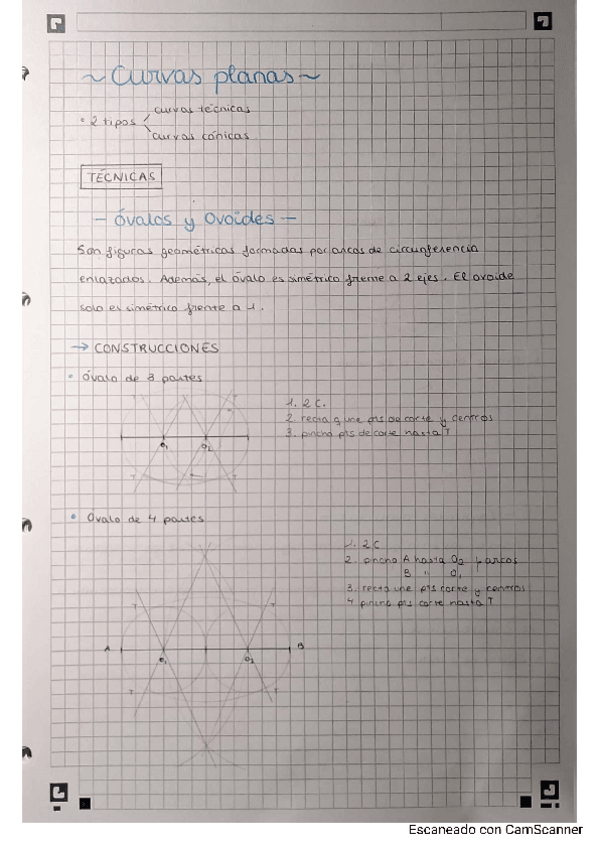 ~ Curvas planas ~
• 2 tipos
curvas técnicas
curvas cónicas
TÉCNICAS
- óvalos y Ovoides -
Son figuras geométricas formadas por arcos de circunferencia
enlazados. Además, el óvalo es simétrico frente a 2 ejes. El ovoide
solo es simétrico frente a 1.
→ CONSTRUCCIONES
• óvalo de 3 partes
1. 2 C.
2. recta q une pts de corte y centros
3. pincho pts de corte hasta T
T
T
O1
O2
T
T
• Óvalo de 4 partes
1. 2 C
2. pincho A hasta O2 arcos
B " O1
3. recta une pts corte y centros
4 pincho pts corte hasta T
T
T
A
O1
O2
B
T
T
Escaneado con CamScanner